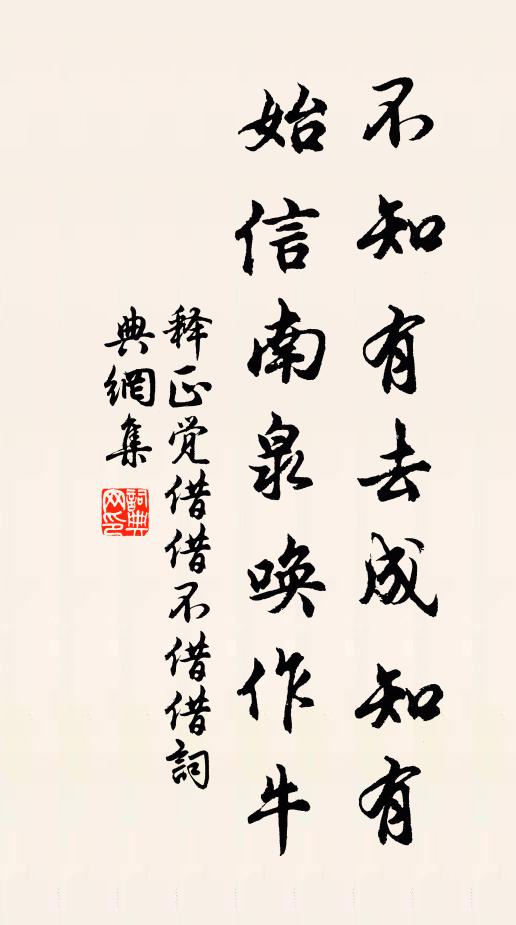 不知有去成知有
始信南泉唤作牛
释正觉借借不借借詞
典網集
詞典网印